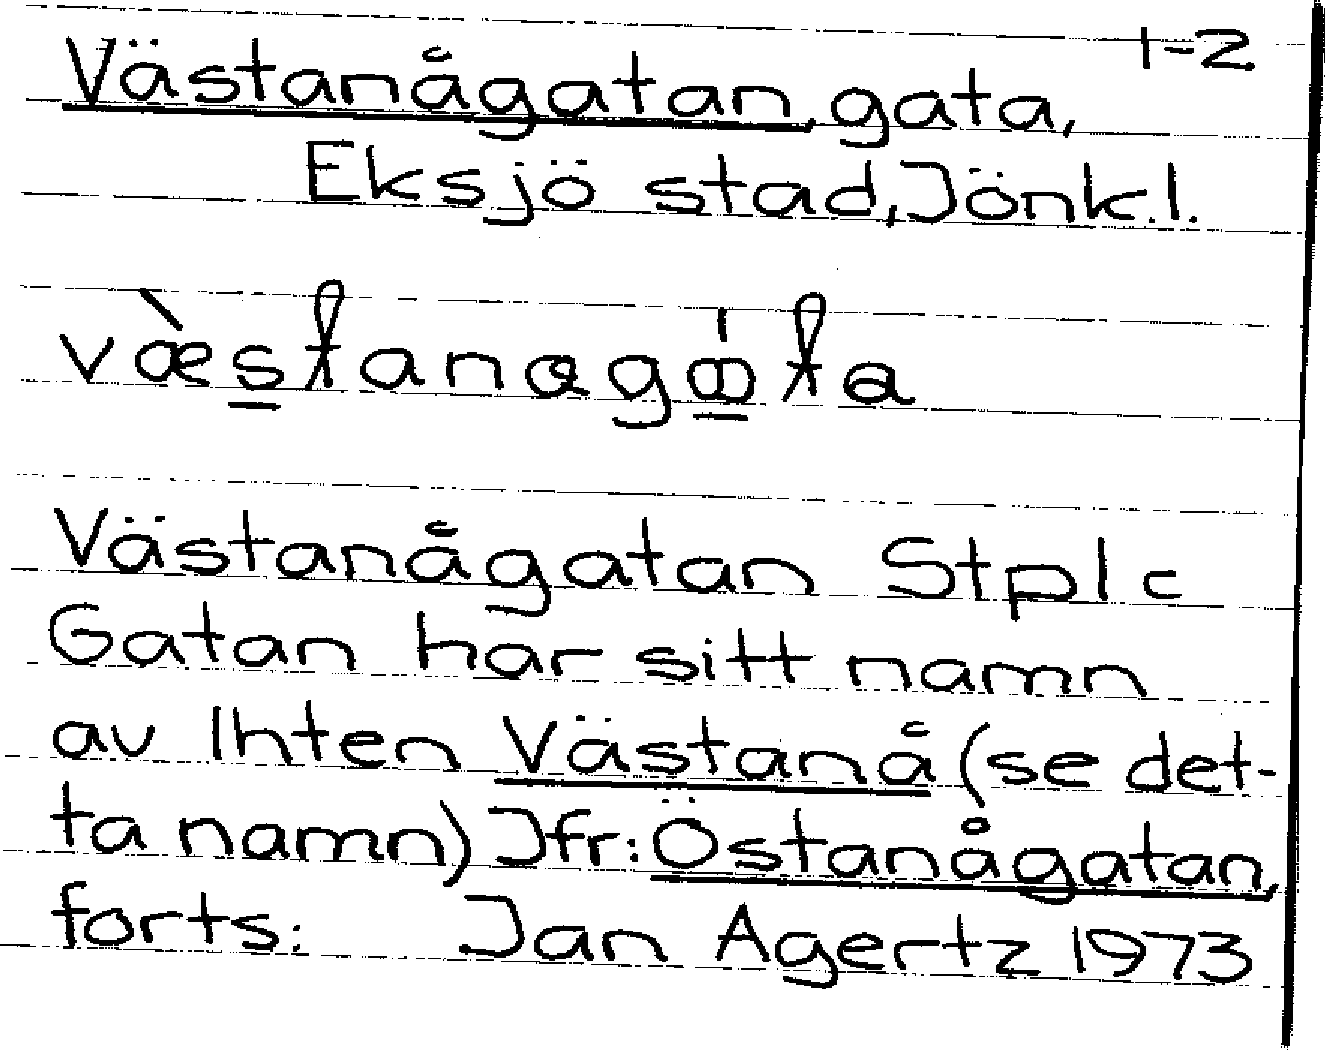 1-2
Västanågatan, gata,
Eksjö stad, Jönk.l.
Västanågatan Stpl c
Gatan har sitt namn
av lhten Västanå (se det-
ta namn) Jfr: Östanågatan,
forts: Jan Agertz 1973